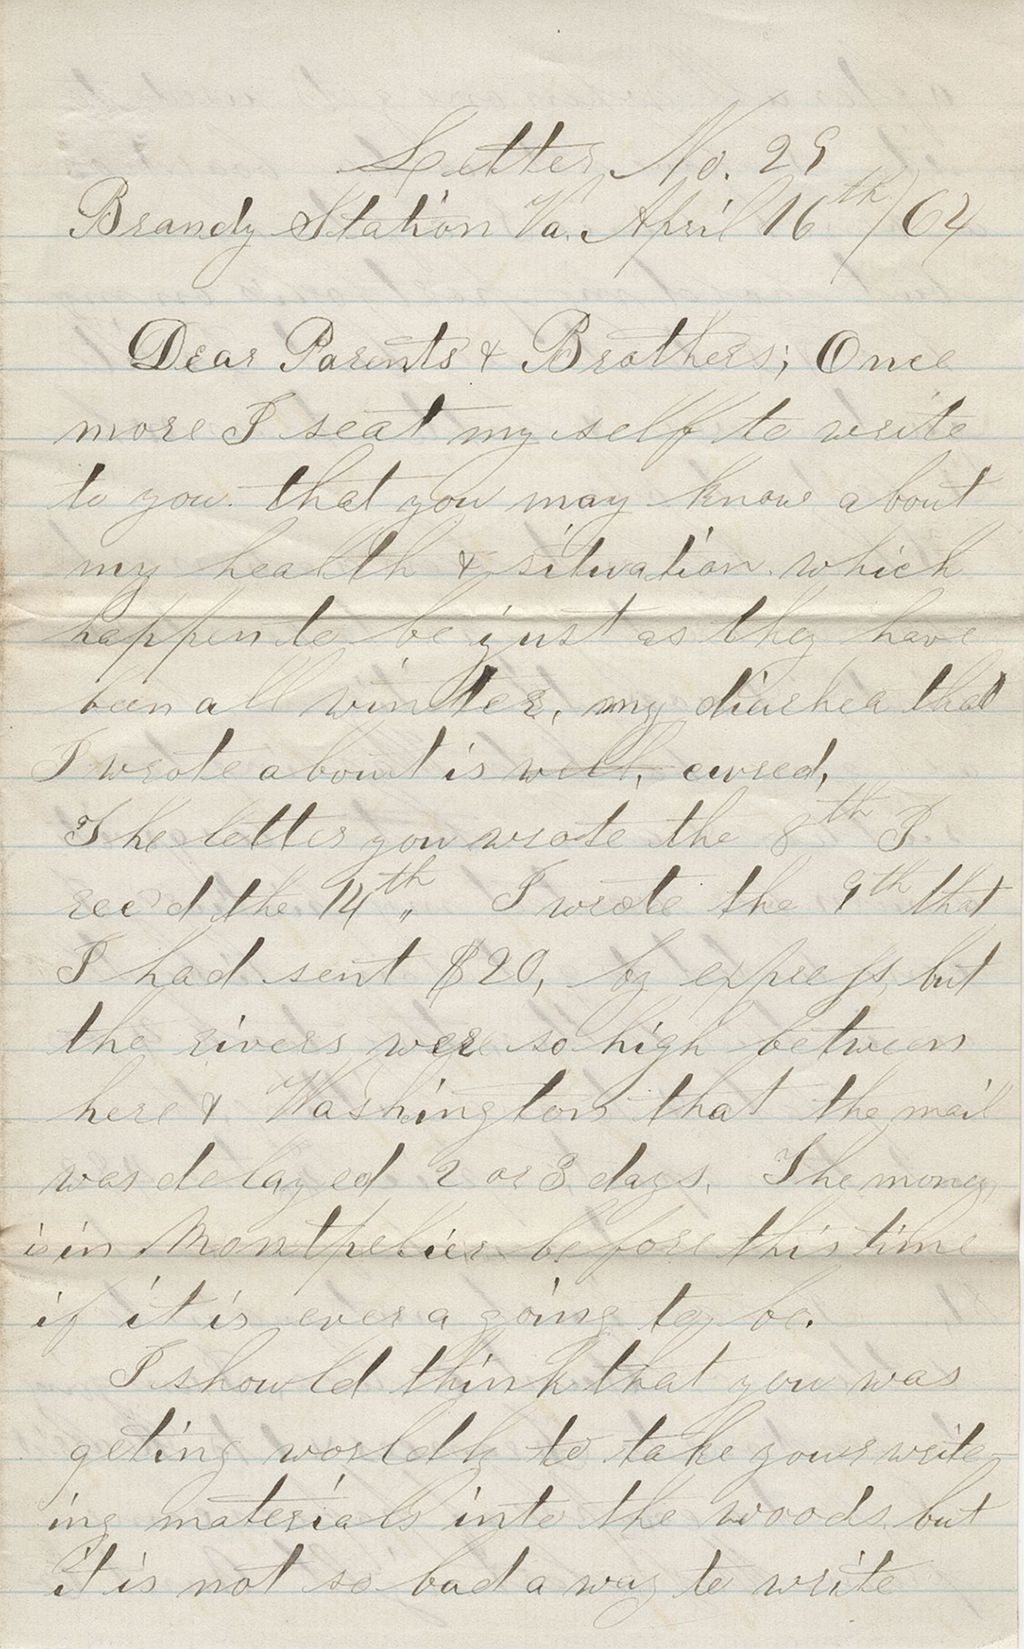 Letter No. 29
Brandy Station Va. April 16th/64
Dear Parents & Brothers; Once
more I seat my self to write
to you that you may know about
my health & situation which
happen to be just as they have
been all winter, my diarhea that
I wrote about is well, cured,
The letter you wrote the 8th I
rec'd the 14th, I wrote the 9th that
I had sent $20, by express, but
the rivers were so high between
here & Washington that the mail
was delayed 2 or 3 days. The money
is in Montpelier before this time
if it is ever a going to be.
I should think that you was
geting worldly to take your write-
ing materials into the woods but
it is not so bad a way to write